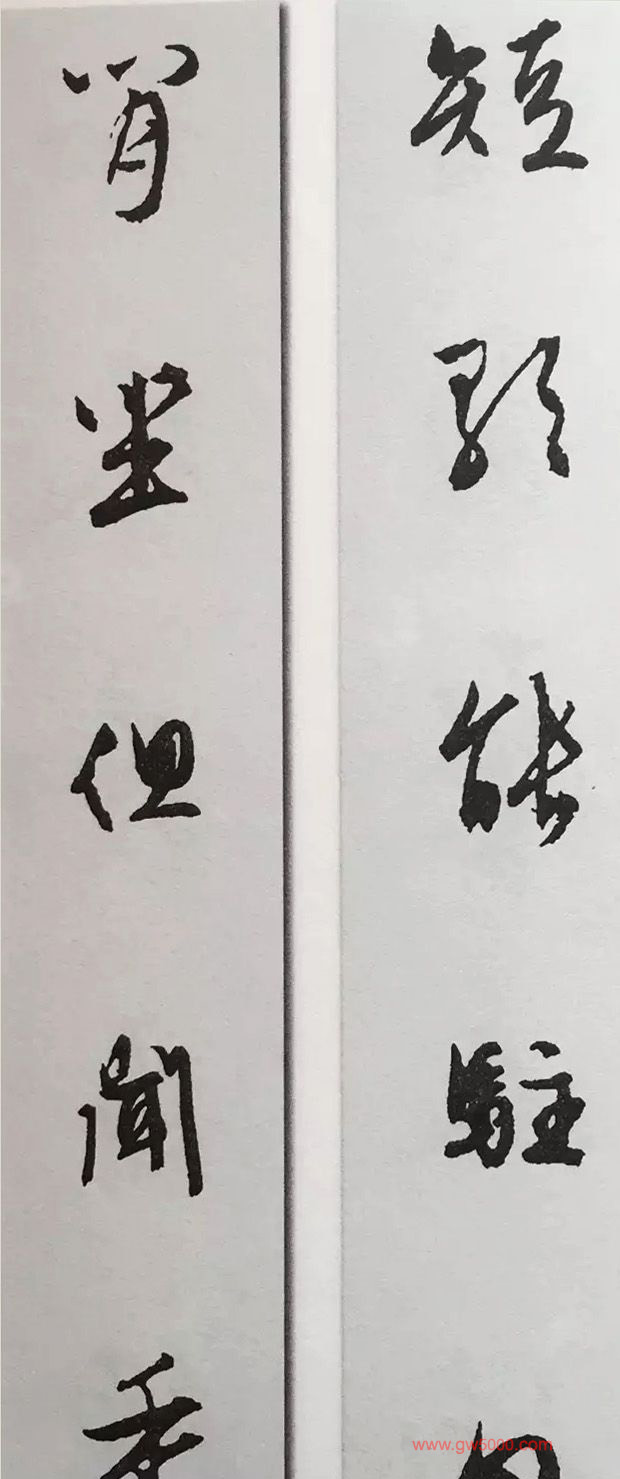 短歌能駐
閒坐但聞
www.gw5000.com